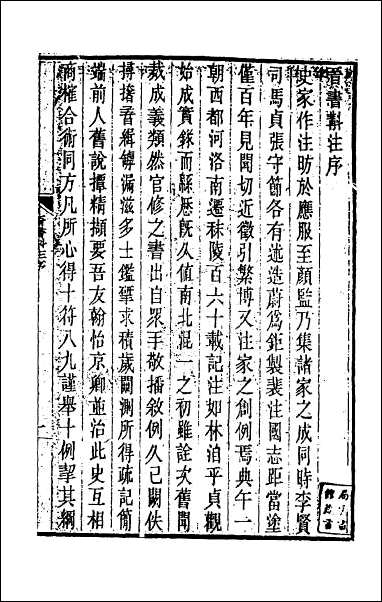 晉書斠注序
史家作注昉於應服至顏監乃集諸家之成同時李賢
司馬貞張守節各有述造蔚爲鉅製裴注國志距當塗
僅百年見聞切近徵引繁博又注家之創例焉典午一
朝西都河洛南遷秣陵百六十載記注如林泊乎貞觀
始成實錄而緜厯旣久値南北混一之初雖詮次舊聞
裁成義類然官修之書出自眾手敬播敘例久已闕佚
撏撦音緝罅漏滋多士鑑肇求積歲闚測所得疏記簡
端前人舊說摭精擷要吾友翰怡京卿並治此史互相
商榷合術同方凡所心得十符八九謹舉十例挈其綱